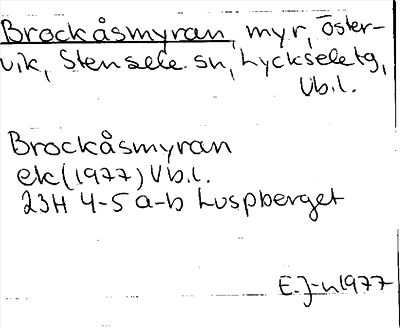 Brockåsmyran, myr, Öster-
vik, Stensele sn, Lycksele tg,
Vb.l.
Brockåsmyran
ek (1977) Vb.l.
23H 4-5 a-b Luspberget
E.J-n 1977